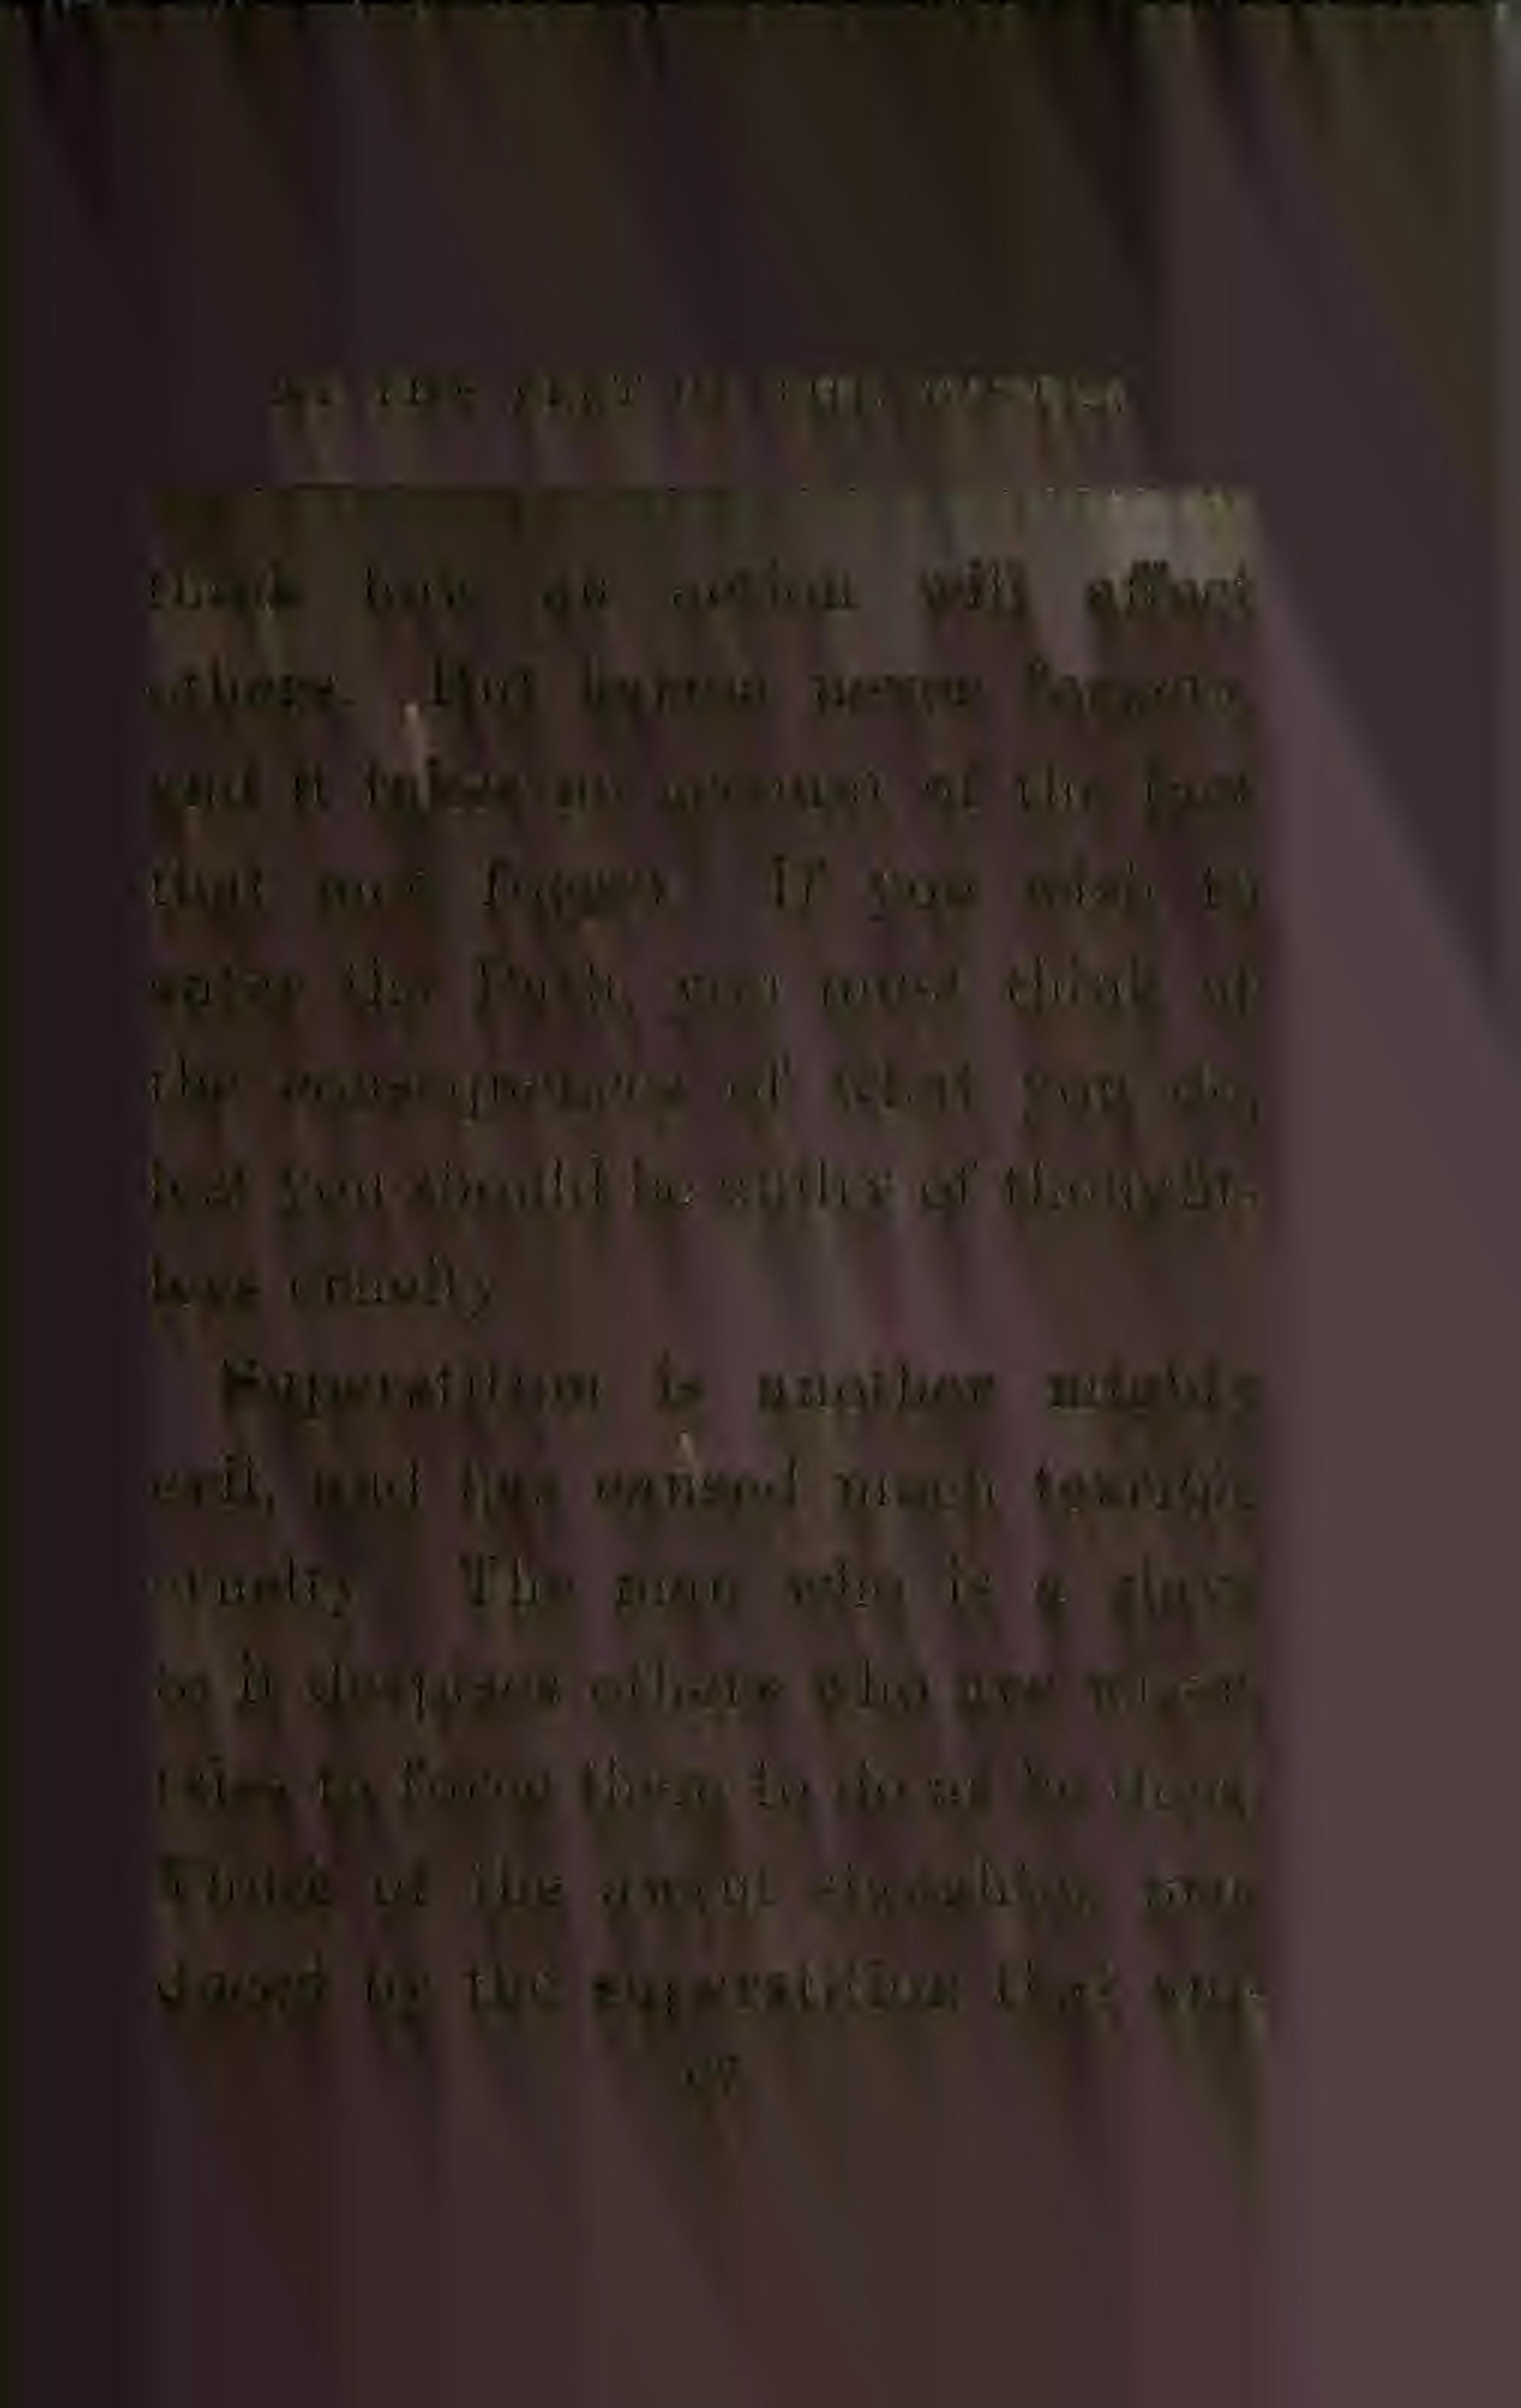 AT THE FEET OF THE MASTER
think how an action will affect
others. But karma never forgets,
and it takes no account of the fact
that men forget. If you wish to
enter the Path, you must think of
the consequences of what you do,
lest you should be guilty of thought-
less cruelty.
Superstition is another mighty
evil, and has caused much terrible
cruelty. The man who is a slave
to it despises others who are wiser,
tries to force them to do as he does.
Think of the awful slaughter pro-
duced by the superstition that